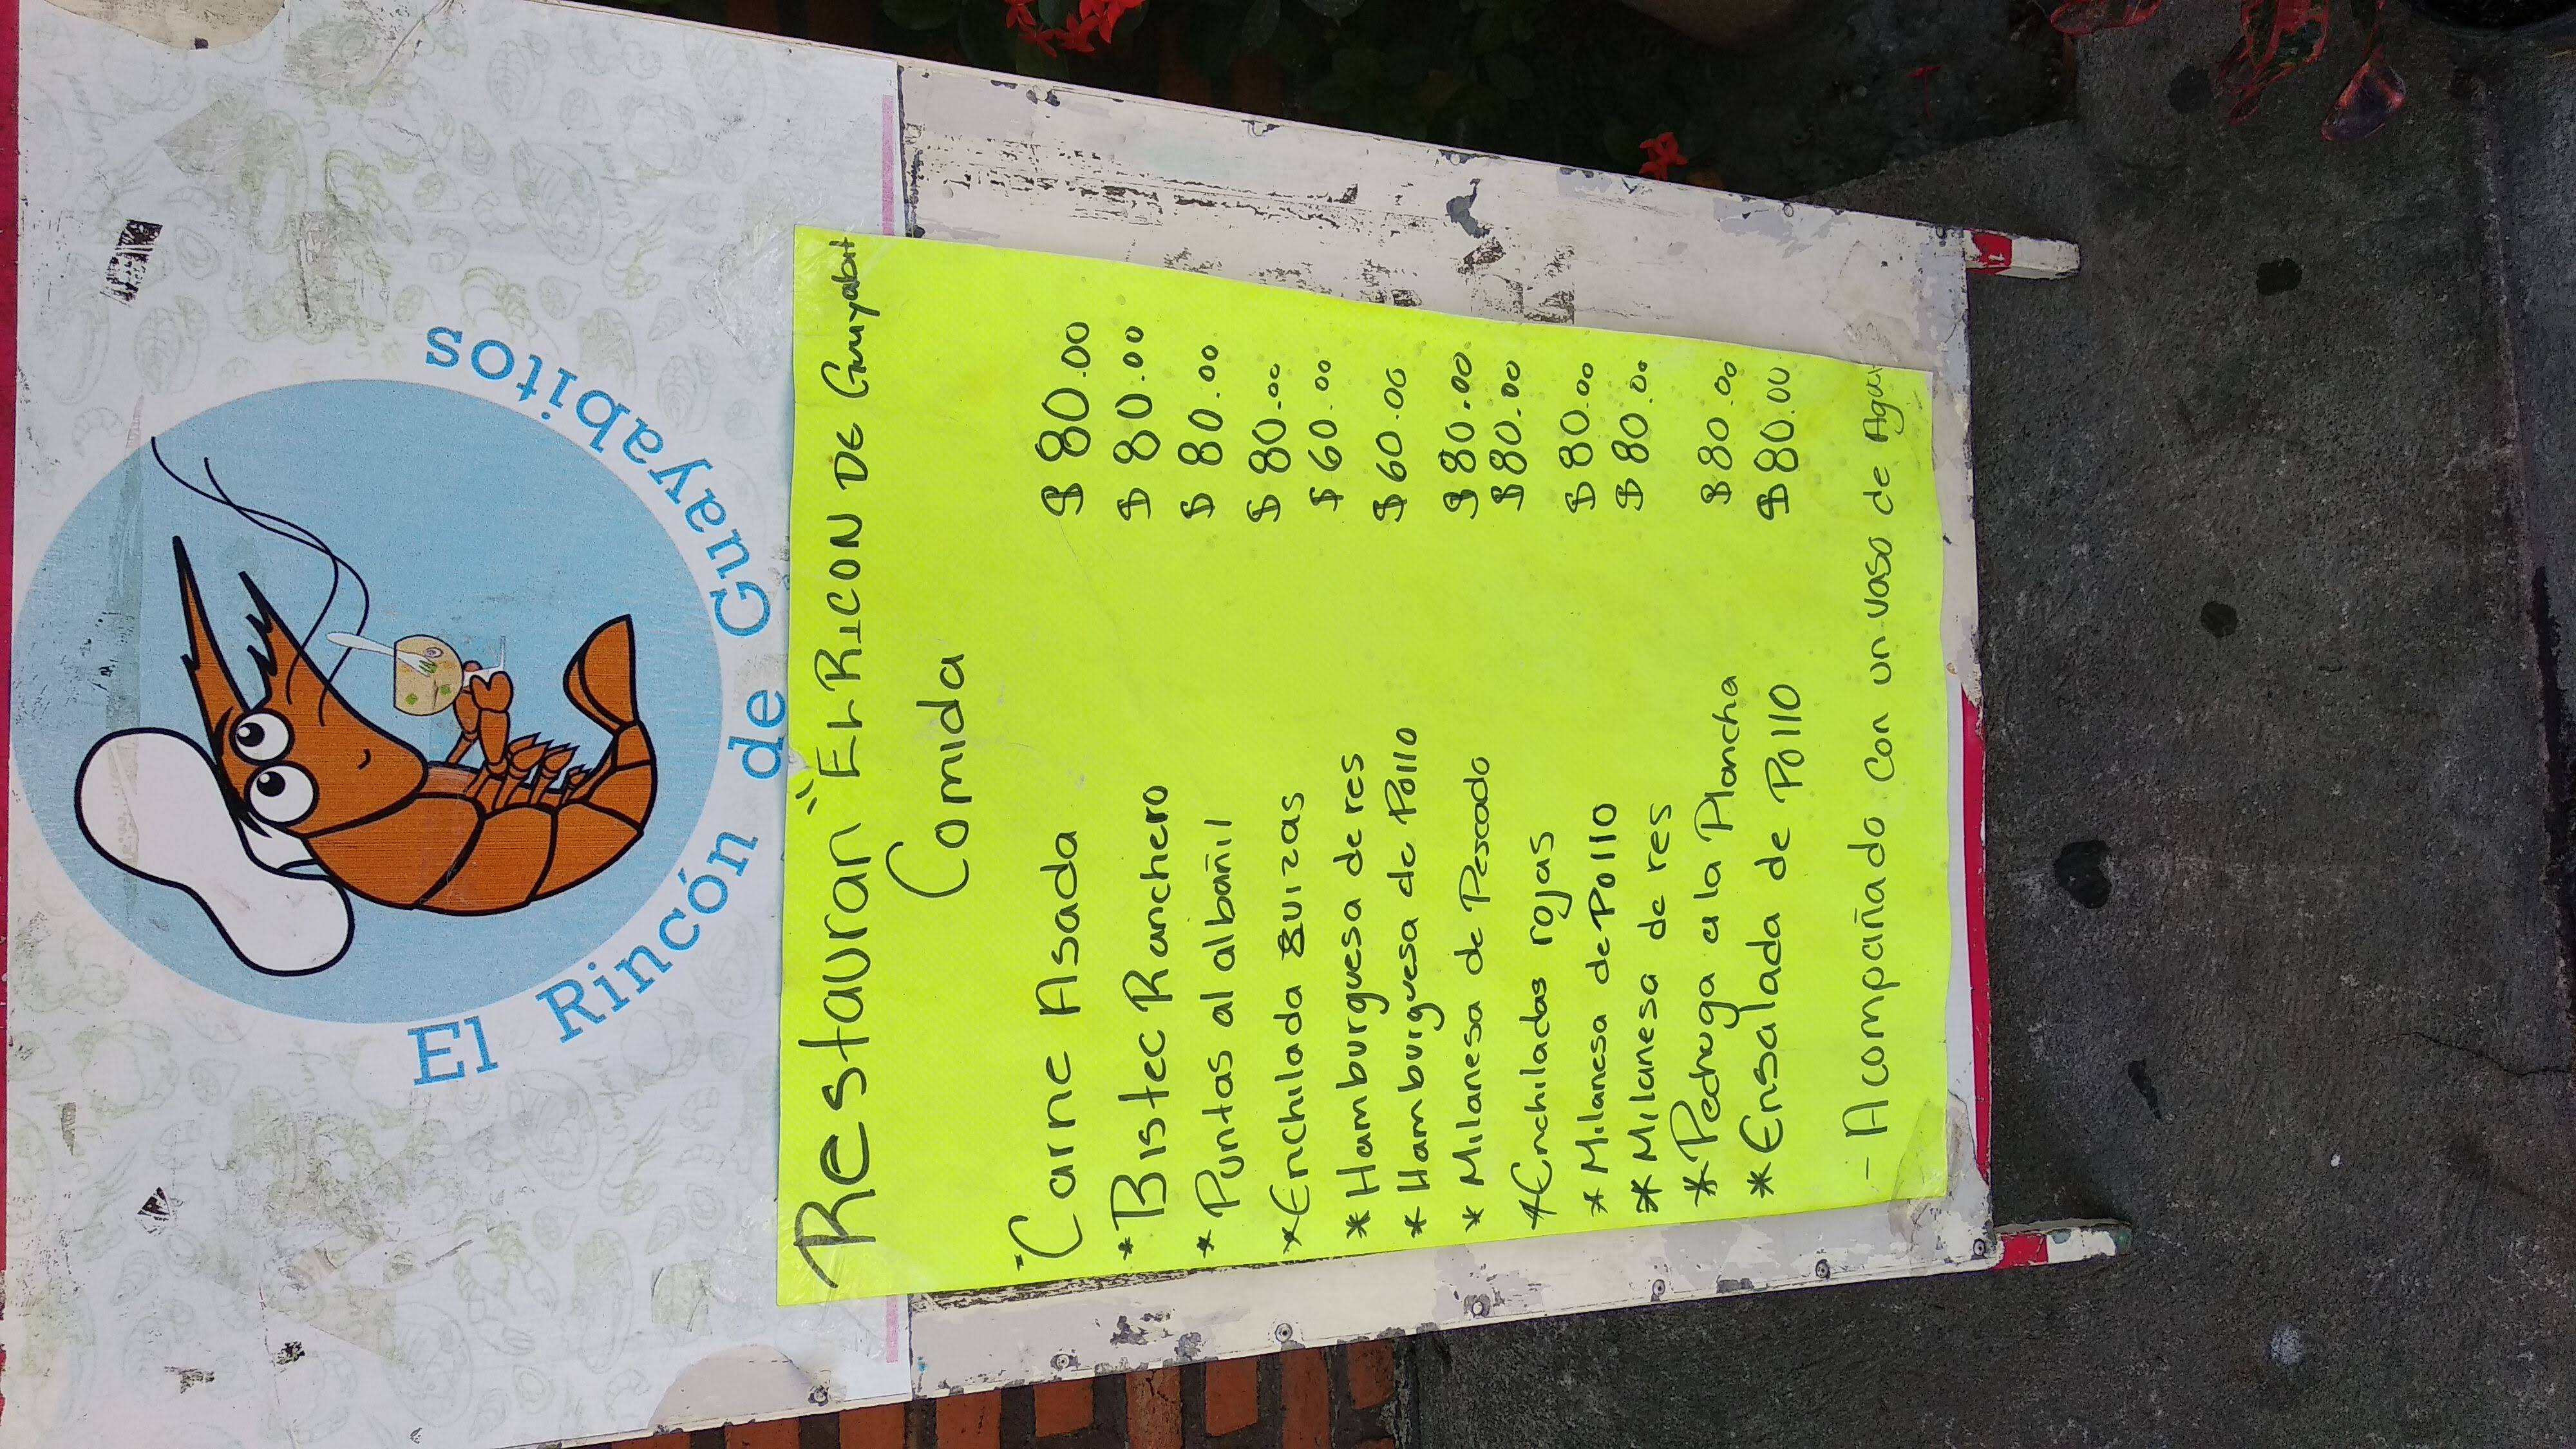 El Rincón de Guayabitos
Restauran "EL RICON DE Guayabit
Comida
*Carne Asada $80.00
*Bistec Ranchero $80.00
*Puntas al albañil $80.00
*Enchilada suizas $80.00
*Hamburguesa de res $60.00
*Hamburguesa de Pollo $60.00
*Milanesa de Pescado $80.00
*Enchiladas rojas $80.00
*Milanesa de Pollo $80.00
*Milanesa de res $80.00
*Pechuga a la Plancha $80.00
*Ensalada de Pollo $80.00
- Acompañado con un vaso de Agua